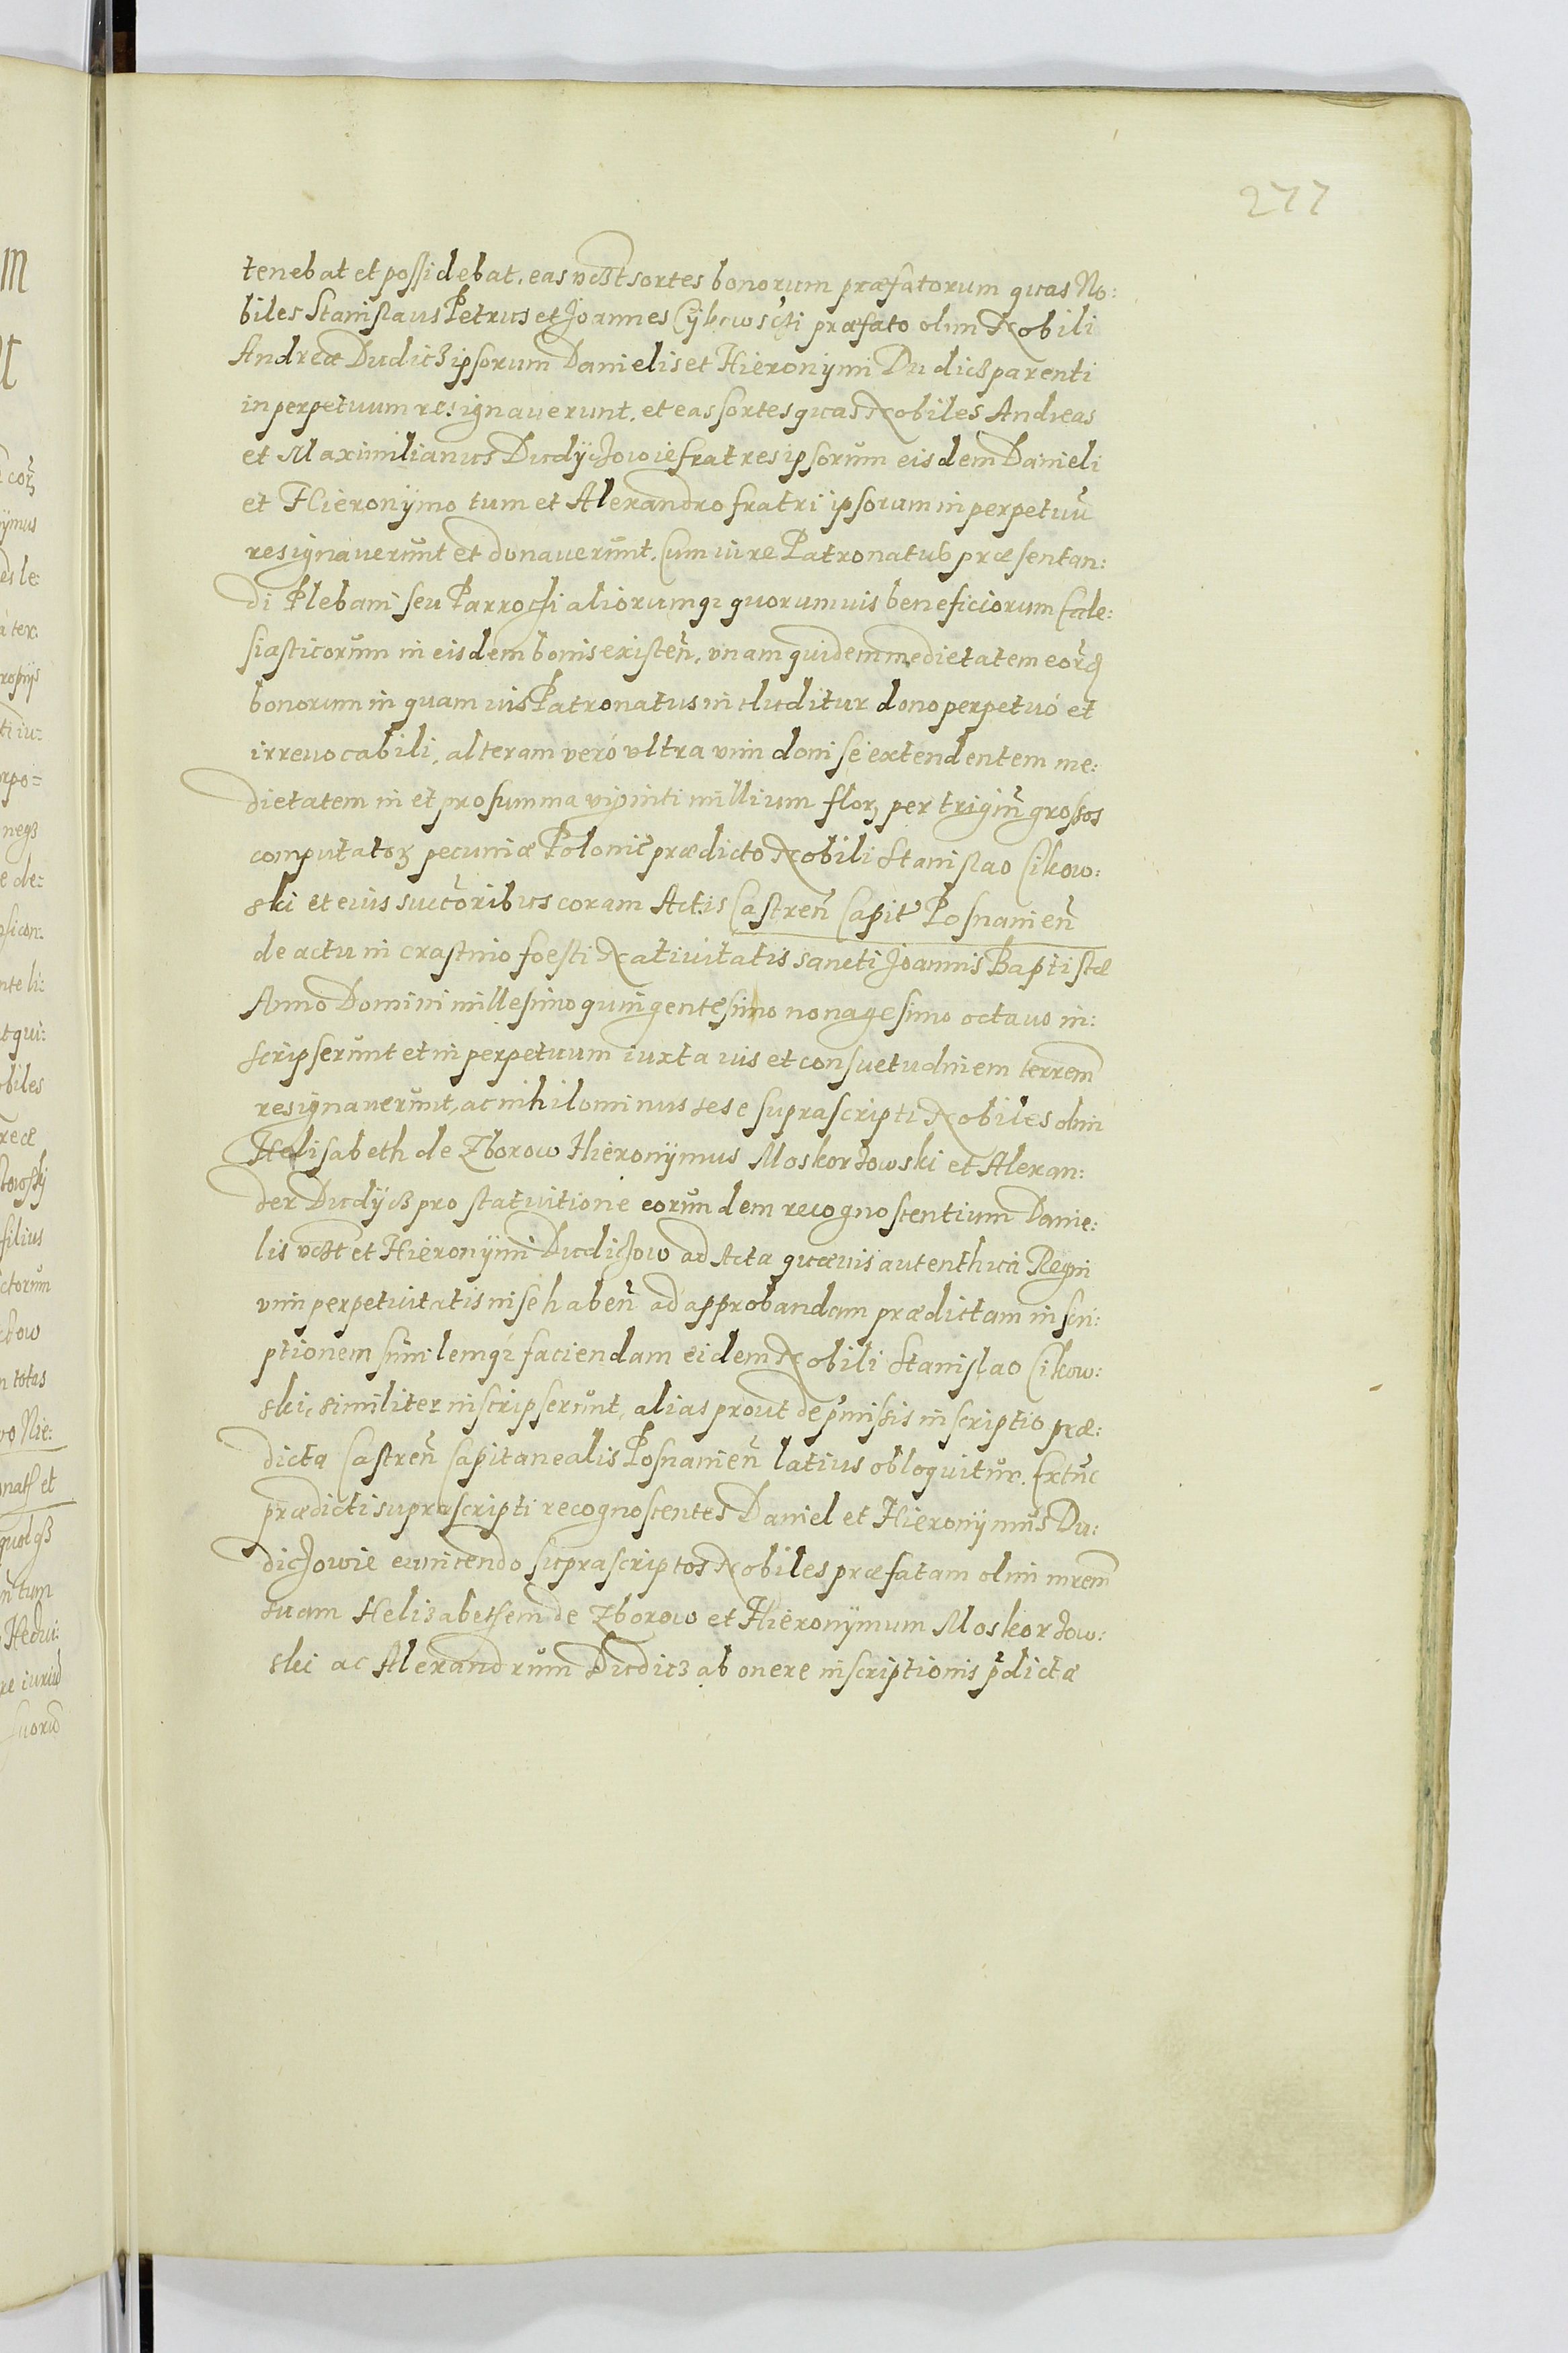 277
tenebat et possidebat, eas vczt sortes bonorum præfatorum quas No:
biles Stanislaus Petrus et Joannes Cÿkowscÿ præfato olim Nobili
Andreæ Dudicz ipsorum Danielis et Hieronÿmi Dudicz parenti
in perpetuum resignauerunt, et eas sortes quas Nobiles Andreas
et Maximilianus Dudÿczowie fratres ipsorum eisdem Danieli
et Hieronÿmo tum et Alexandro fratri ipsorum in perpetuũ
resignauerunt et donauerunt. Cum iure Patronatus præsentan:
di Plebani seu Parrochi aliorumqȝ quorumuis beneficiorum Eccle:
siasticorum in eisdem bonis existeñ, vnam quidem medietatem eorūd
bonorum in quam ius Patronatus includitur dono perpetuó et
irreuocabili, alteram veró vltra vim doni se extendentem me:
dietatem in et pro summa viginti millium florȝ per trigiñ grossos
computatorȝ pecuniæ Polonic̃ prædicto Nobili Stanislao Cikow:
ski et eius succ̃oribus coram Actis Castreñ Capit̃ Posnanieñ
de actu in crastino foesti Natiuitatis sancti Joannis Baptistæ
Anno Domini millesimo quingentesimo nonagesimo octauo in:
scripserunt et in perpetuum iuxta ius et consuetudinem terrem̃
resignauerunt, ac nihilominus sese suprascripti Nobiles olim
Helisabeth de Zborow Hieronÿmus Moskorzowski et Alexan:
der Dudÿcz pro statuitione eorundem recognoscentium Danie:
lis vczt et Hieronÿmi Dudiczow ad Acta quæuis autenthica Regni
vim perpetuitatis in se habeñ ad approbandam prædictam inscri:
ptionem similemqȝ faciendam eidem Nobili Stanislao Cikow:
ski, similiter inscripserunt, alias prout de p̃missis inscriptio præ:
dicta Castreñ Capitanealis Posnanieñ latius obloquitur. Extũc
prædicti suprascripti recognoscentes Daniel et Hieronÿmus Du:
diczowie euincendo suprascriptos Nobiles præfatam olim mrem̃
suam Helizabethem de Zborow et Hieronÿmum Moskorzow:
ski ac Alexandrum Dudicz ab onere inscriptionis p̃dictæ